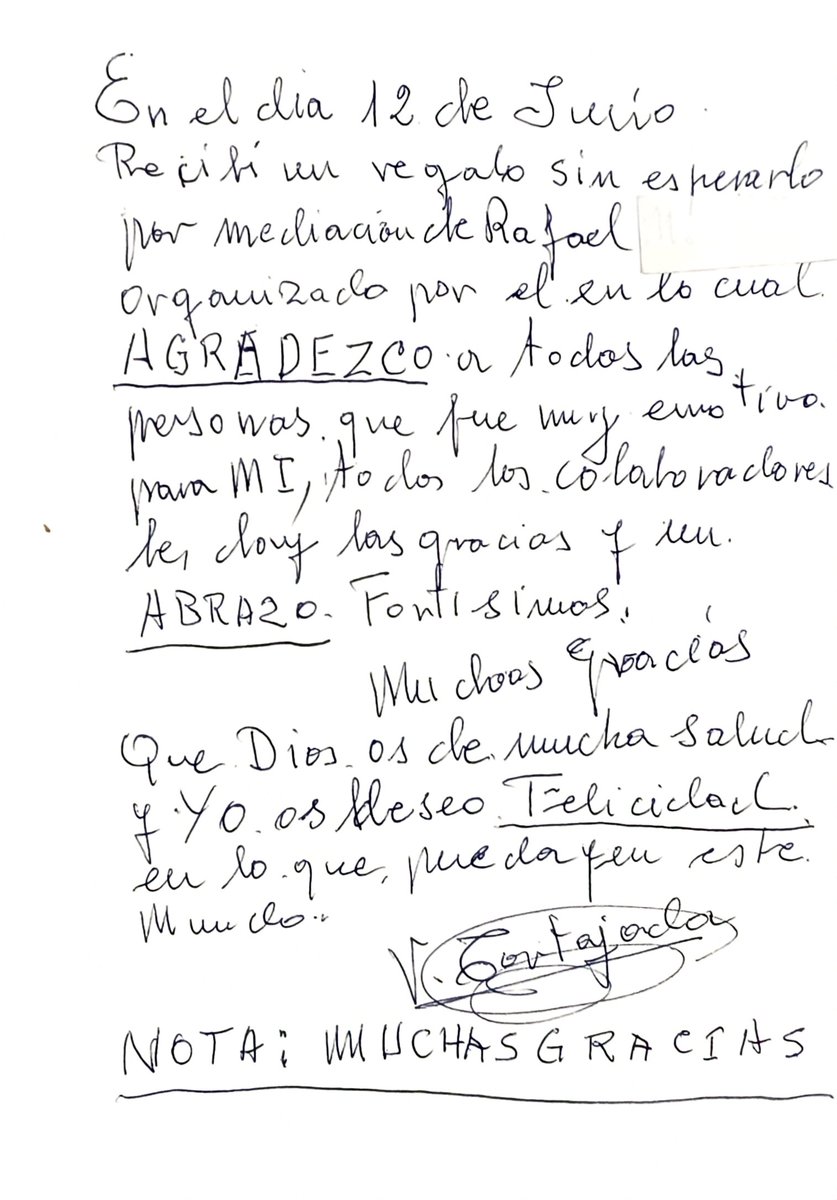 En el dia 12 de Junio.
Recibí un regalo sin esperarlo
por mediación de Rafael
organizado por el en lo cual.
AGRADEZCO a todos las
personas. que fue muy emotivo.
para MI, todos los colaboradores
les doy las gracias y un.
ABRAZO. Fortisimos.
Muchas gracias
Que Dios. os de mucha salud
y YO. os deseo. Felicidad.
en lo que, pueda y en este.
Mundo..
V. Tortajada
NOTA: MUCHAS GRACIAS